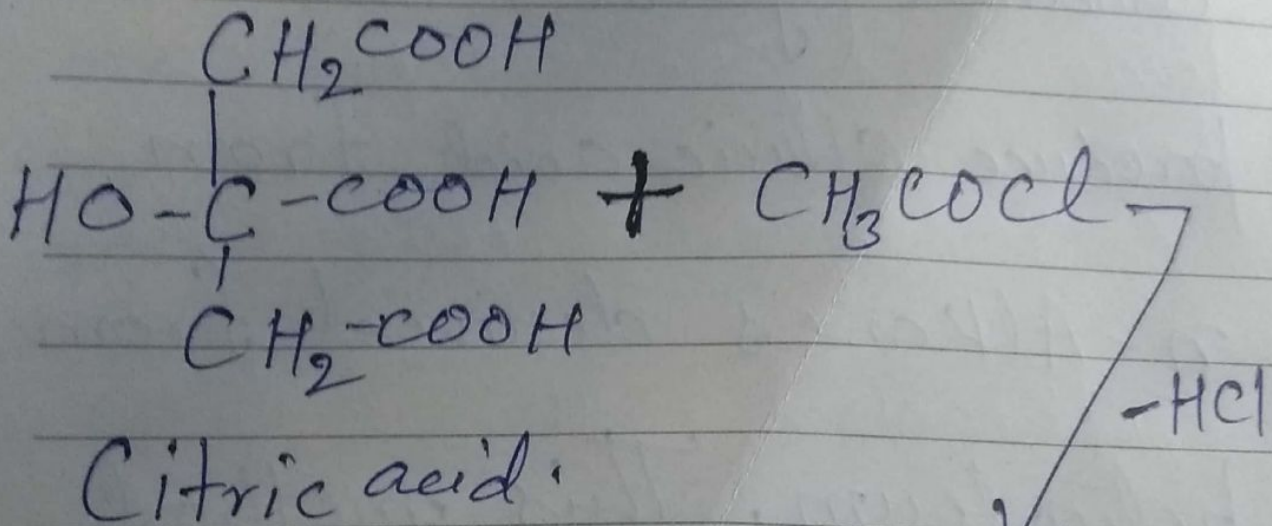 CH₂COOH
|
HO-C-COOH + CH₃COCl
|
CH₂-COOH
-HCl
Citric acid.